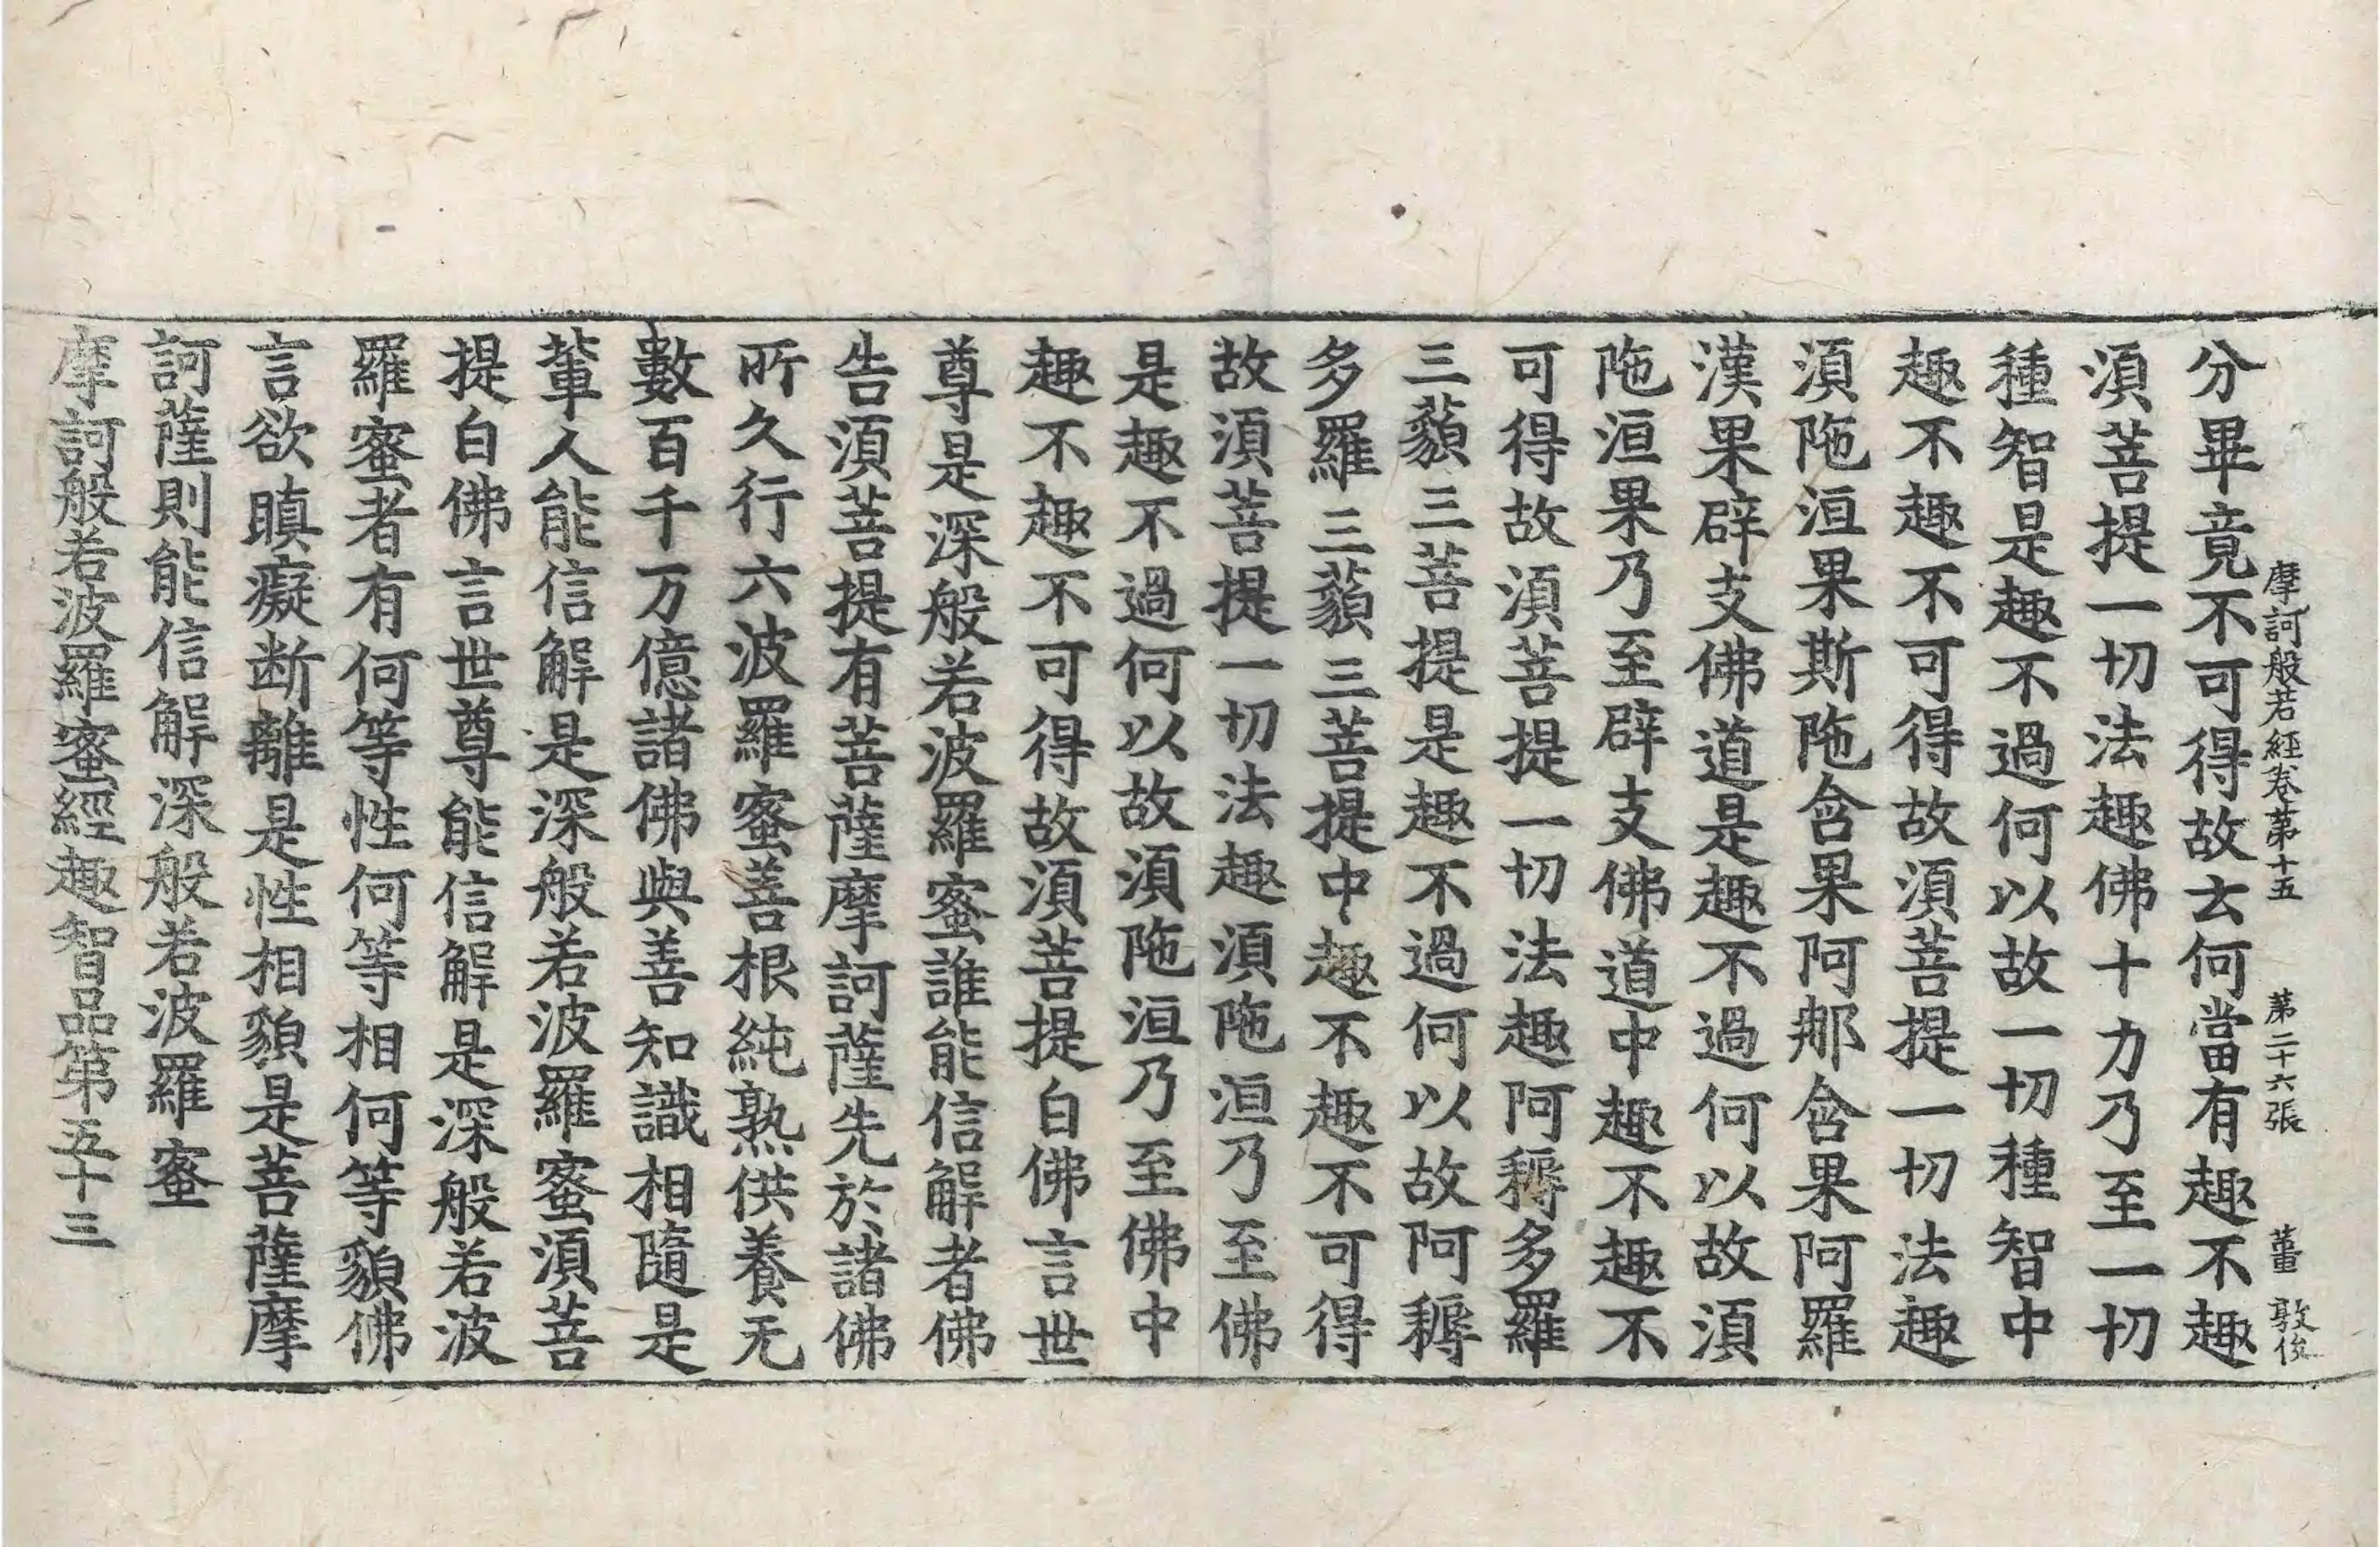 摩訶般若經卷第十五 第二十六張 董敦俊
分畢竟不可得故去何當有趣不趣
湏菩提一切法趣佛十力乃至一切
種智是趣不過何以故一切種智中
趣不趣不可得故湏菩提一切法趣
湏陁洹果斯陁含果阿那含果阿羅
漢果辟支佛道是趣不過何以故湏
陁洹果乃至辟支佛道中趣不趣不
可得故湏菩提一切法趣阿耨多羅
三藐三菩提是趣不過何以故阿耨
多羅三藐三菩提中趣不趣不可得
故湏菩提一切法趣湏陁洹乃至佛
是趣不過何以故湏陁洹乃至佛中
趣不趣不可得故湏菩提白佛言世
尊是深般若波羅蜜誰能信解者佛
告湏菩提有菩薩摩訶薩先於諸佛
所久行六波羅蜜善根純熟供養无
數百千万億諸佛與善知識相隨是
軰人能信解是深般若波羅蜜湏菩
提白佛言世尊能信解是深般若波
羅蜜者有何等性何等相何等貌佛
言欲瞋癡断離是性相貌是菩薩摩
訶薩則能信解深般若波羅蜜
摩訶般若波羅蜜經趣智品第五十三